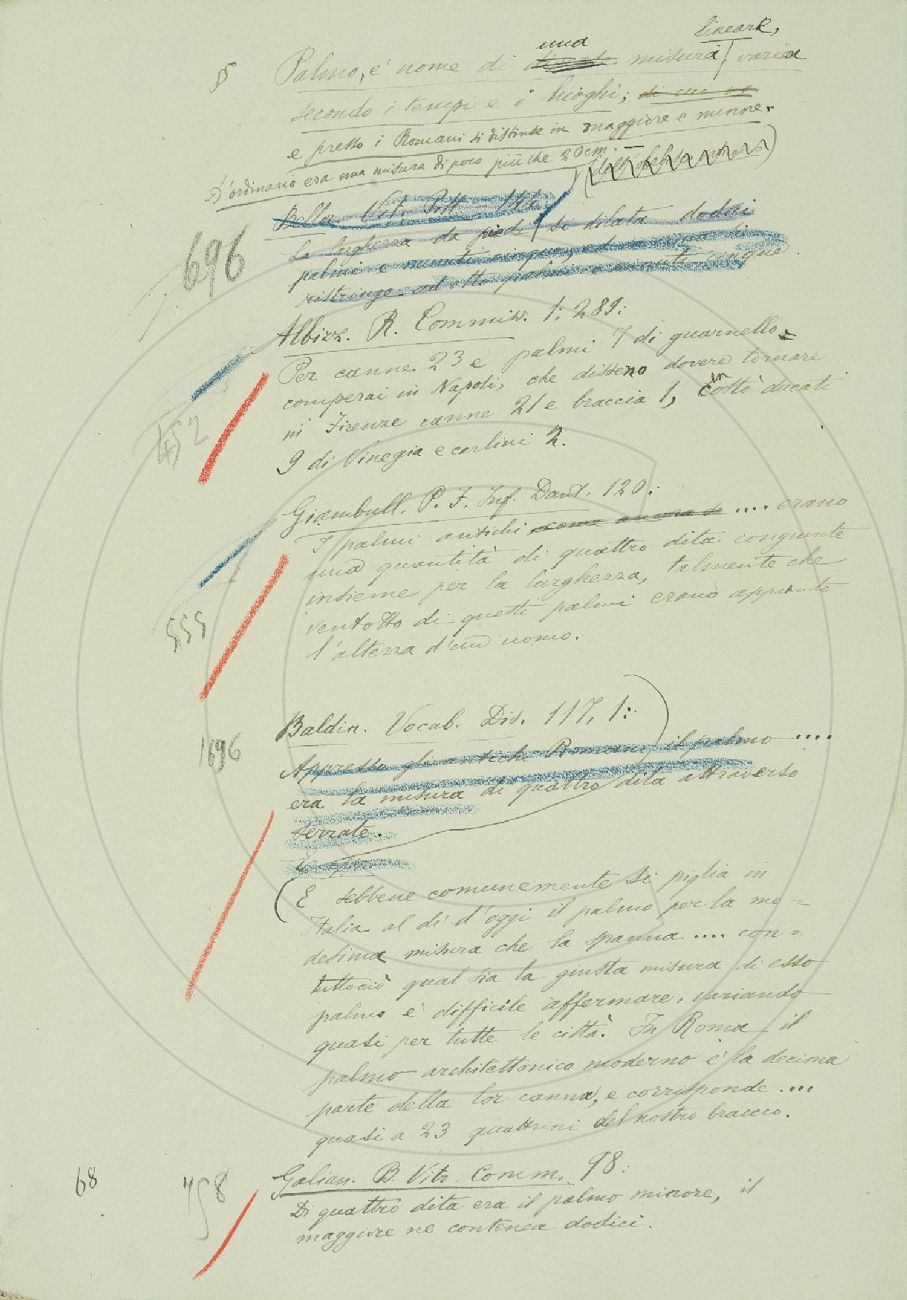 lineare,
una
§ Palmo, è nome di misura varia
secondo i tempi e i luoghi;
e presso i Romani si distinse in maggiore e minore.
D'ordinario era una misura di poco più che 20 cm.
Bellor. Vit. Pitt. 144.
La larghezza da piedi si dilata dodici
696
palmi e minuti cinque, ed in cima si
ristringe ad otto palmi e minuti cinque.
Albizz. R. Commiss. 1, 289:
Per canne 23 e palmi 7 di guarnello
comperai in Napoli, che dissono dovere tornare
in
in Firenze canne 21 e braccia 1, costò ducati
452
9 di Vinegia e carlini 2.
Giambull. P. F. Inf. Dant. 120:
I palmi antichi come ancora .... erano
una quantità di quattro dita congiunte
insieme per la larghezza, talmente che
555
ventotto di questi palmi erano appunto
l'altezza d'un uomo.
Baldin. Vocab. Dis. 117, 1:
1696
Appresso gli antichi Romani) il palmo ....
era la misura di quattro dita attraverso
serrate.
(E sebbene comunemente si piglia in
Italia al dì d'oggi il palmo per la me-
desima misura che la spanna .... con-
tuttociò qual sia la giusta misura di esso
palmo è difficile affermare, variando
quasi per tutte le città. In Roma il
palmo architettonico moderno è la decima
parte della lor canna, e corrisponde ....
quasi a 23 quattrini del nostro braccio.
68
758
Galian. B. Vitr. Comm. 98:
Di quattro dita era il palmo minore, il
maggiore ne contenea dodici.